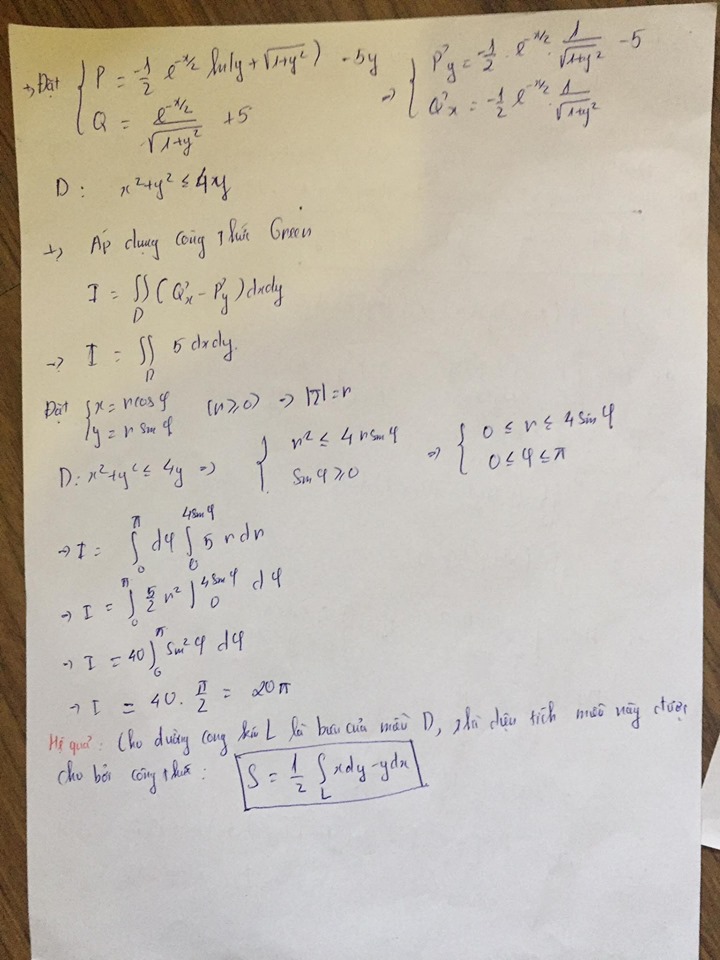 +, Đặt { P = -1/2 e^{-x/2} ln(y + √(1+y²)) - 5y => { P'y = -1/2 . e^{-x/2} . 1/√(1+y²) - 5
Q = e^{-x/2}/√(1+y²) + 5 Q'x = -1/2 e^{-x/2} . 1/√(1+y²)
D: x²+y² ≤ 4xy
+, Áp dụng công thức Green
I = ∬_D (Q'x - P'y) dxdy
-> I = ∬_D 5 dxdy.
Đặt { x = r cosφ (r ≥ 0) -> |J| = r
y = r sinφ
D: x²+y² ≤ 4y => { r² ≤ 4 r sinφ => { 0 ≤ r ≤ 4 sinφ
sinφ ≥ 0 0 ≤ φ ≤ π
-> I = ∫_0^π dφ ∫_0^{4sinφ} 5 r dr
-> I = ∫_0^π 5/2 r² |_0^{4sinφ} dφ
-> I = 40 ∫_0^π sin²φ dφ
-> I = 40 . π/2 = 20π
Hệ quả: Cho đường cong kín L là biên của miền D, thì diện tích miền này được
cho bởi công thức: S = 1/2 ∫_L xdy - ydx